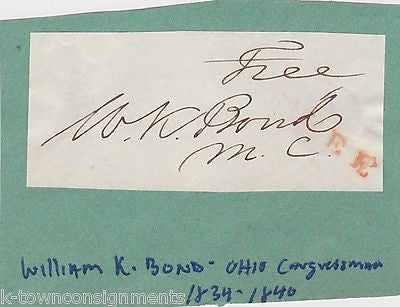 Free
W. K. Bond
M. C.
EE
William K. Bond - Ohio Congressman
1834-1840
k-townconsignments